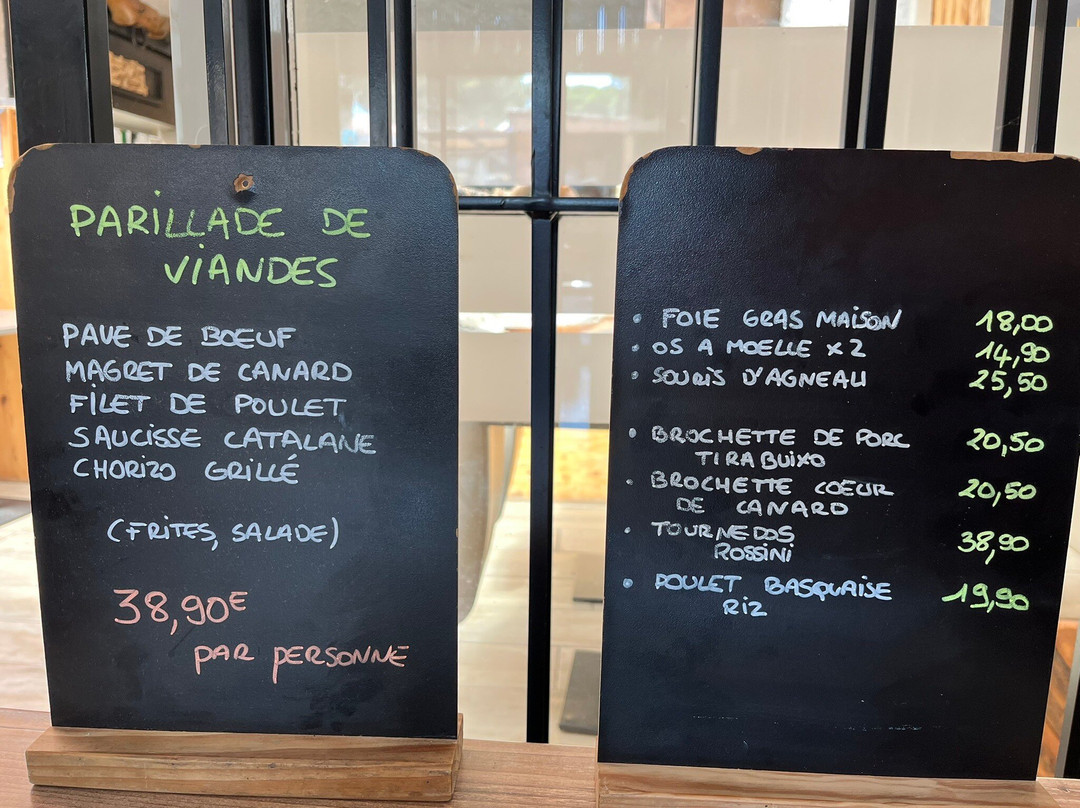 PARILLADE DE
VIANDES
PAVE DE BOEUF
MAGRET DE CANARD
FILET DE POULET
SAUCISSE CATALANE
CHORIZO GRILLÉ
(FRITES, SALADE)
38,90€
PAR PERSONNE
• FOIE GRAS MAISON 18,00
• OS A MOELLE x2 14,90
• SOURIS D'AGNEAU 25,50
• BROCHETTE DE PORC 20,50
TIRABUIXO
• BROCHETTE COEUR 20,50
DE CANARD
• TOURNEDOS 38,90
ROSSINI
• POULET BASQUAISE 19,90
RIZ